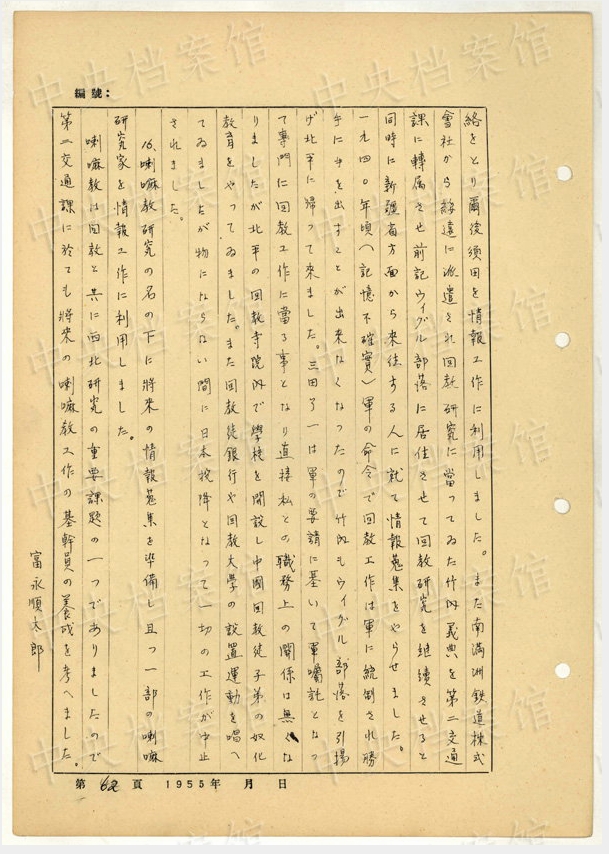 編號：
絡をとり爾後須田を情報工作に利用しました。また南滿洲鉄道株式
會社から綏遠に派遣され回教研究に當ってゐた竹内義典を第二交通
課に轉属させ前記ウイグル部落に居住させて回教研究を継續させると
同時に新疆省方面から来往する人に就て情報蒐集をやらせました。
一九四〇年頃（記憶不確實）軍の命令で回教工作は軍に統制され勝
手に手を出すことが出来なくなったので竹内もウイグル部落を引揚
げ北平に帰って来ました。三田了一は軍の要請に基いて軍囑託となっ
て専門に回教工作に當る事となり直接私との職務上の関係は無くな
りましたが北平の回教寺院内で學校を開設し中國回教徒子弟の奴化
教育をやってゐました。また回教徒銀行や回教大學の設置運動を唱へ
てゐましたが物にならない間に日本投降となって一切の工作が中止
されました。
16、喇嘛教研究の名の下に将来の情報蒐集を準備し且つ一部の喇嘛
研究家を情報工作に利用しました。
喇嘛教は回教と共に西北研究の重要課題の一つでありましたので
第二交通課に於ても将来の喇嘛教工作の基幹員の養成を考へました。
富永順太郎
第 62 頁 1955年 月 日
中央档案馆